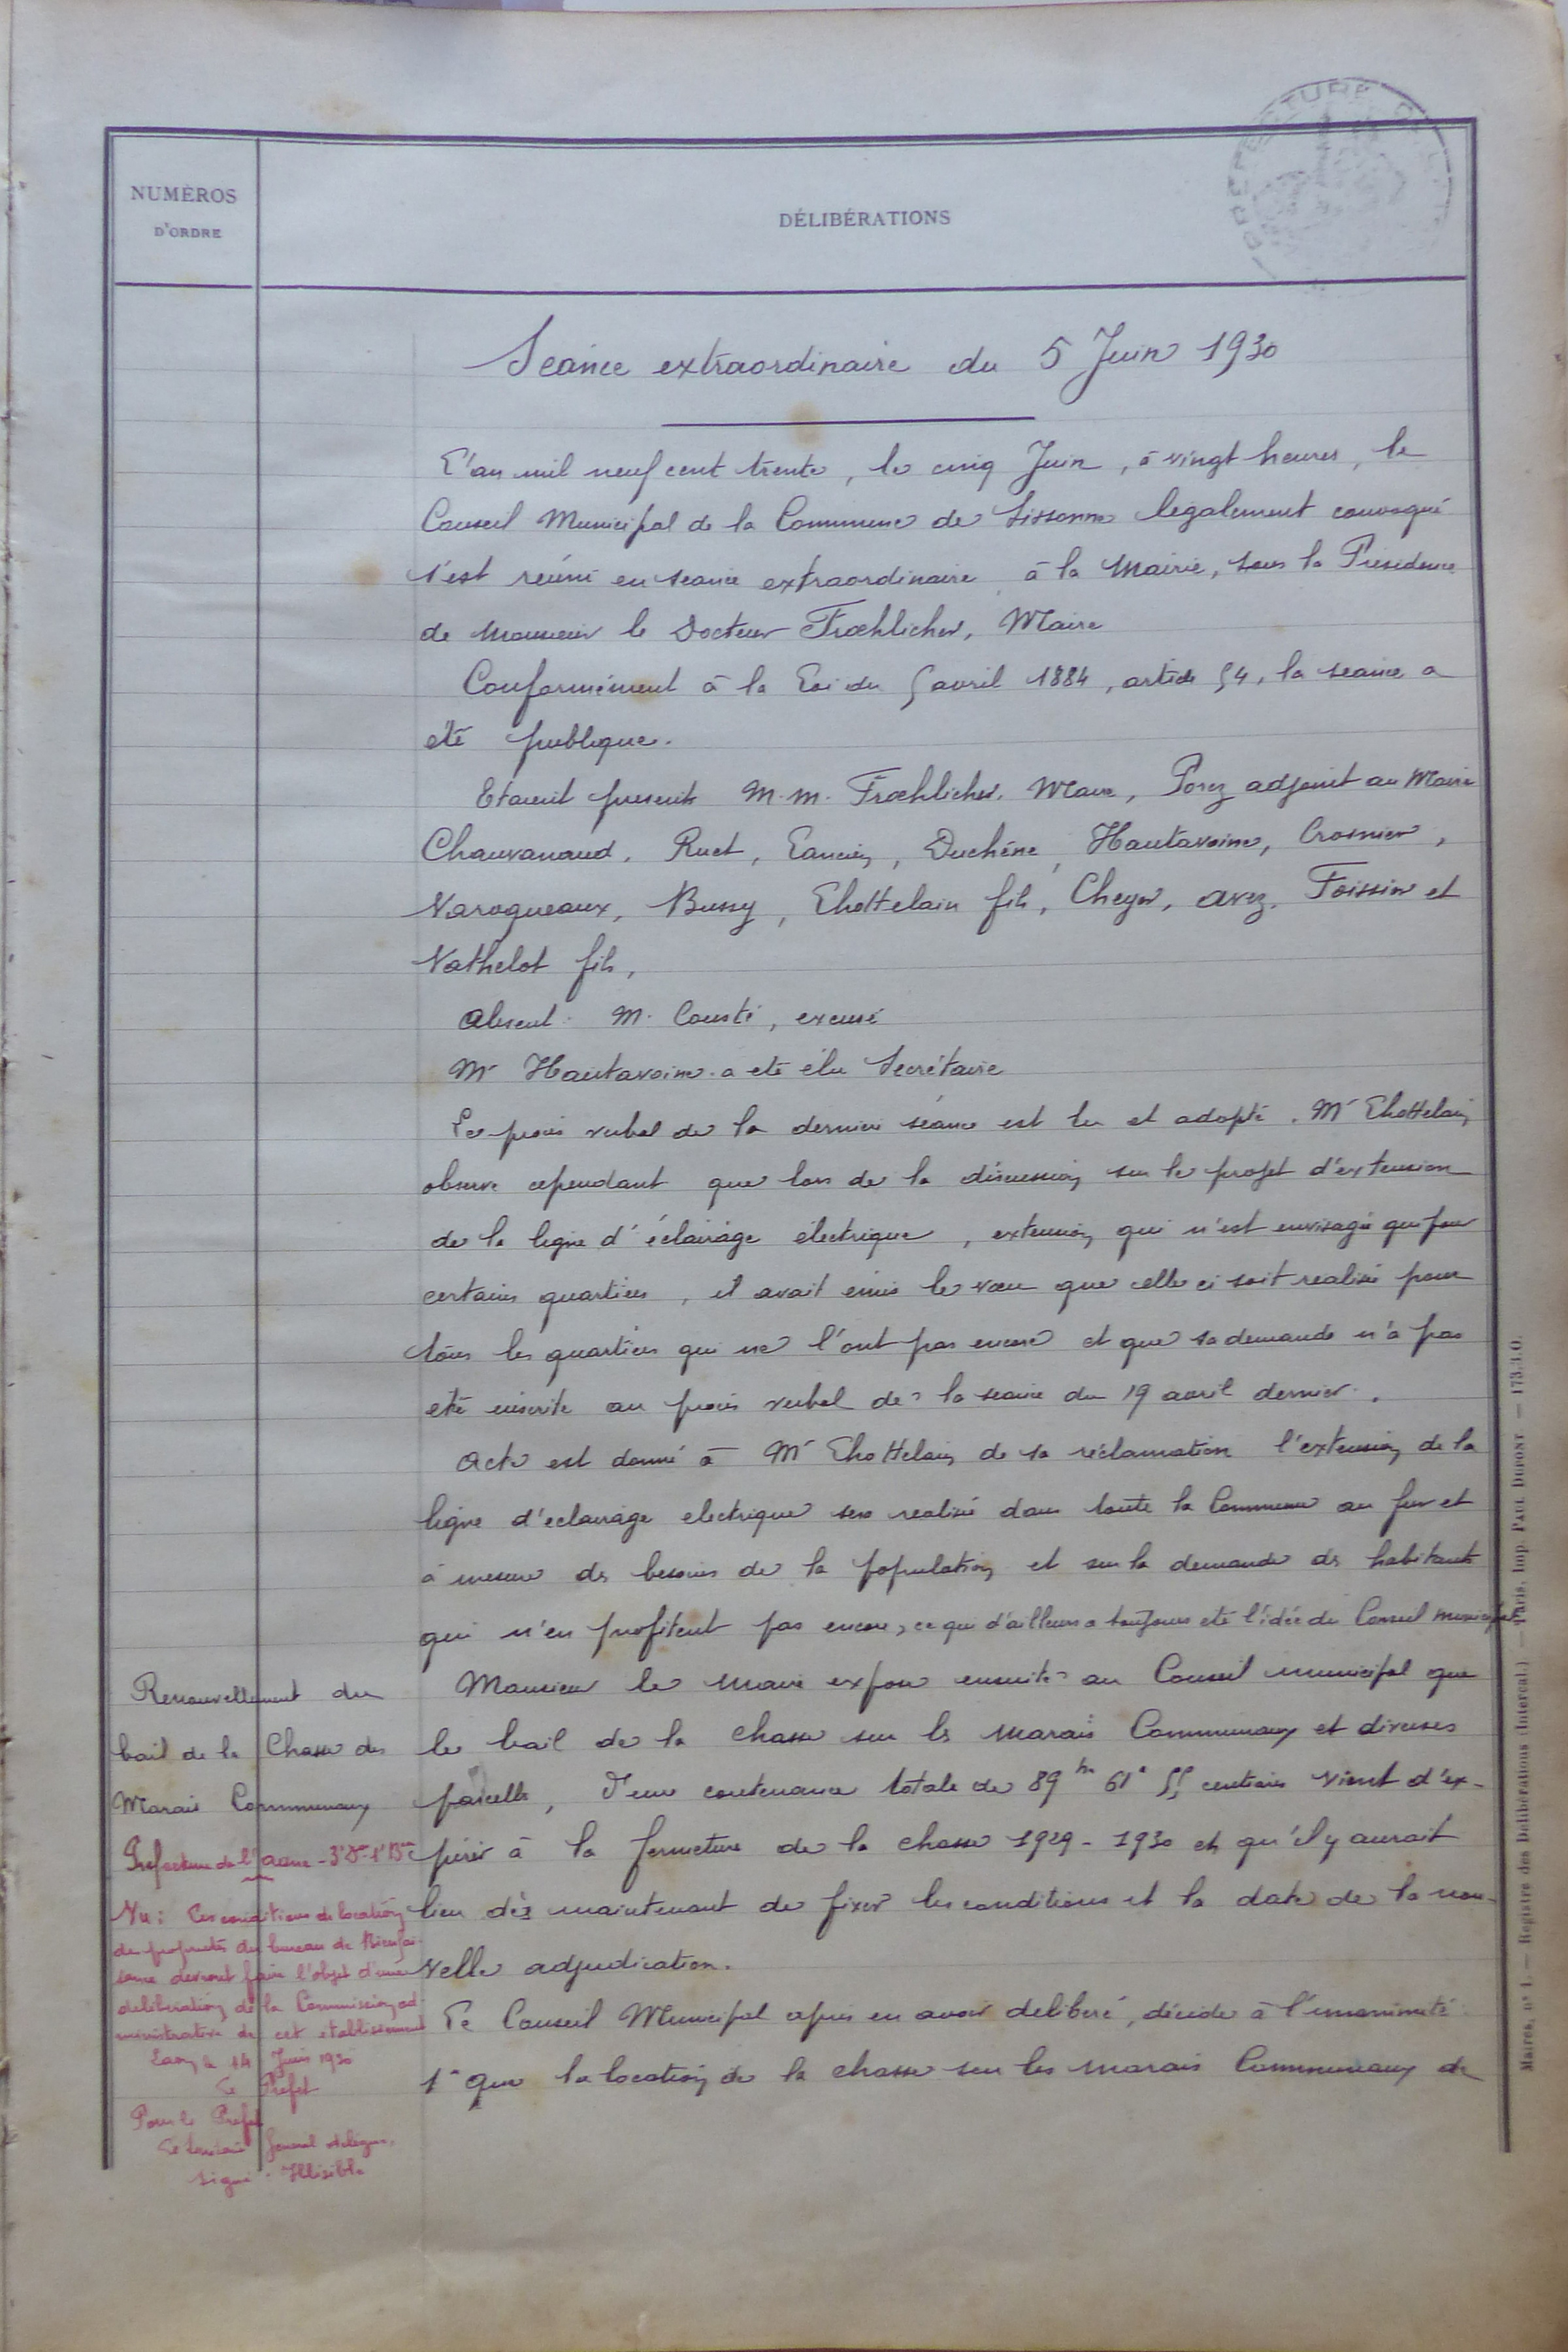 NUMÉROS
D'ORDRE
DÉLIBÉRATIONS
Séance extraordinaire du 5 Juin 1930
L'an mil neuf cent trente, le cinq Juin, à vingt heures, le
Conseil Municipal de la Commune de Sissonne légalement convoqué
s'est réuni en séance extraordinaire à la Mairie, sous la Présidence
de Monsieur le Docteur Froehlicher, Maire
Conformément à la Loi du 5 avril 1884, article 54, la séance a
été publique.
Etaient présents M.M. Froehlicher, Maire, Porez adjoint au Maire
Chauvanaud, Ruet, Lancien, Duchêne, Hautavoine, Crosnier,
Varoqueaux, Bussy, Lhottelain fils, Cheyer, Avez, Foissier et
Vathelot fils,
Absent M. Cousté, excusé
Mr Hautavoine a été élu Secrétaire
Le procès verbal de la dernière séance est lu et adopté. Mr Lhottelain
observe cependant que lors de la discussion sur le projet d'extension
de la ligne d'éclairage électrique, extension qui n'est envisagée que pour
certains quartiers, il avait émis le vœu que celle ci soit réalisée pour
tous les quartiers qui ne l'ont pas encore et que sa demande n'a pas
été inscrite au procès verbal de la séance du 19 avril dernier.
Acte est donné à Mr Lhottelain de sa réclamation l'extension de la
ligne d'éclairage electrique sera réalisée dans toute la Commune au fur et
à mesure des besoins de la population et sur la demande des habitants
qui n'en profitent pas encore, ce qui d'ailleurs a toujours été l'idée du Conseil municipal
Renouvellement du
bail de la Chasse des
Marais Communaux
Monsieur le Maire expose ensuite au Conseil municipal que
le bail de la chasse sur les marais Communaux et diverses
parcelles, d'une contenance totale de 89 ha 61 a 55 centiares vient d'ex-
pirer à la fermeture de la chasse 1929-1930 et qu'il y aurait
lieu dès maintenant de fixer les conditions et la date de la nou-
velle adjudication.
Le Conseil Municipal après en avoir délibéré, décide à l'unanimité
1° que la location de la chasse sur les marais Communaux de
Préfecture de l'Aisne - 3e Don 1er Bau
Vu: Les conditions de location
des propriétés du bureau de Bienfai-
sance devront faire l'objet d'une
délibération de la Commission ad-
ministrative de cet établissement
Laon, le 14 Juin 1930
Le Préfet
Pour le Préfet
Le Secrétaire Général délégué,
Signé: Illisible
Mairies, n° 1. — Registre des Délibérations (Intercal.) — Paris, Imp. PAUL DUPONT — 173.3.0.